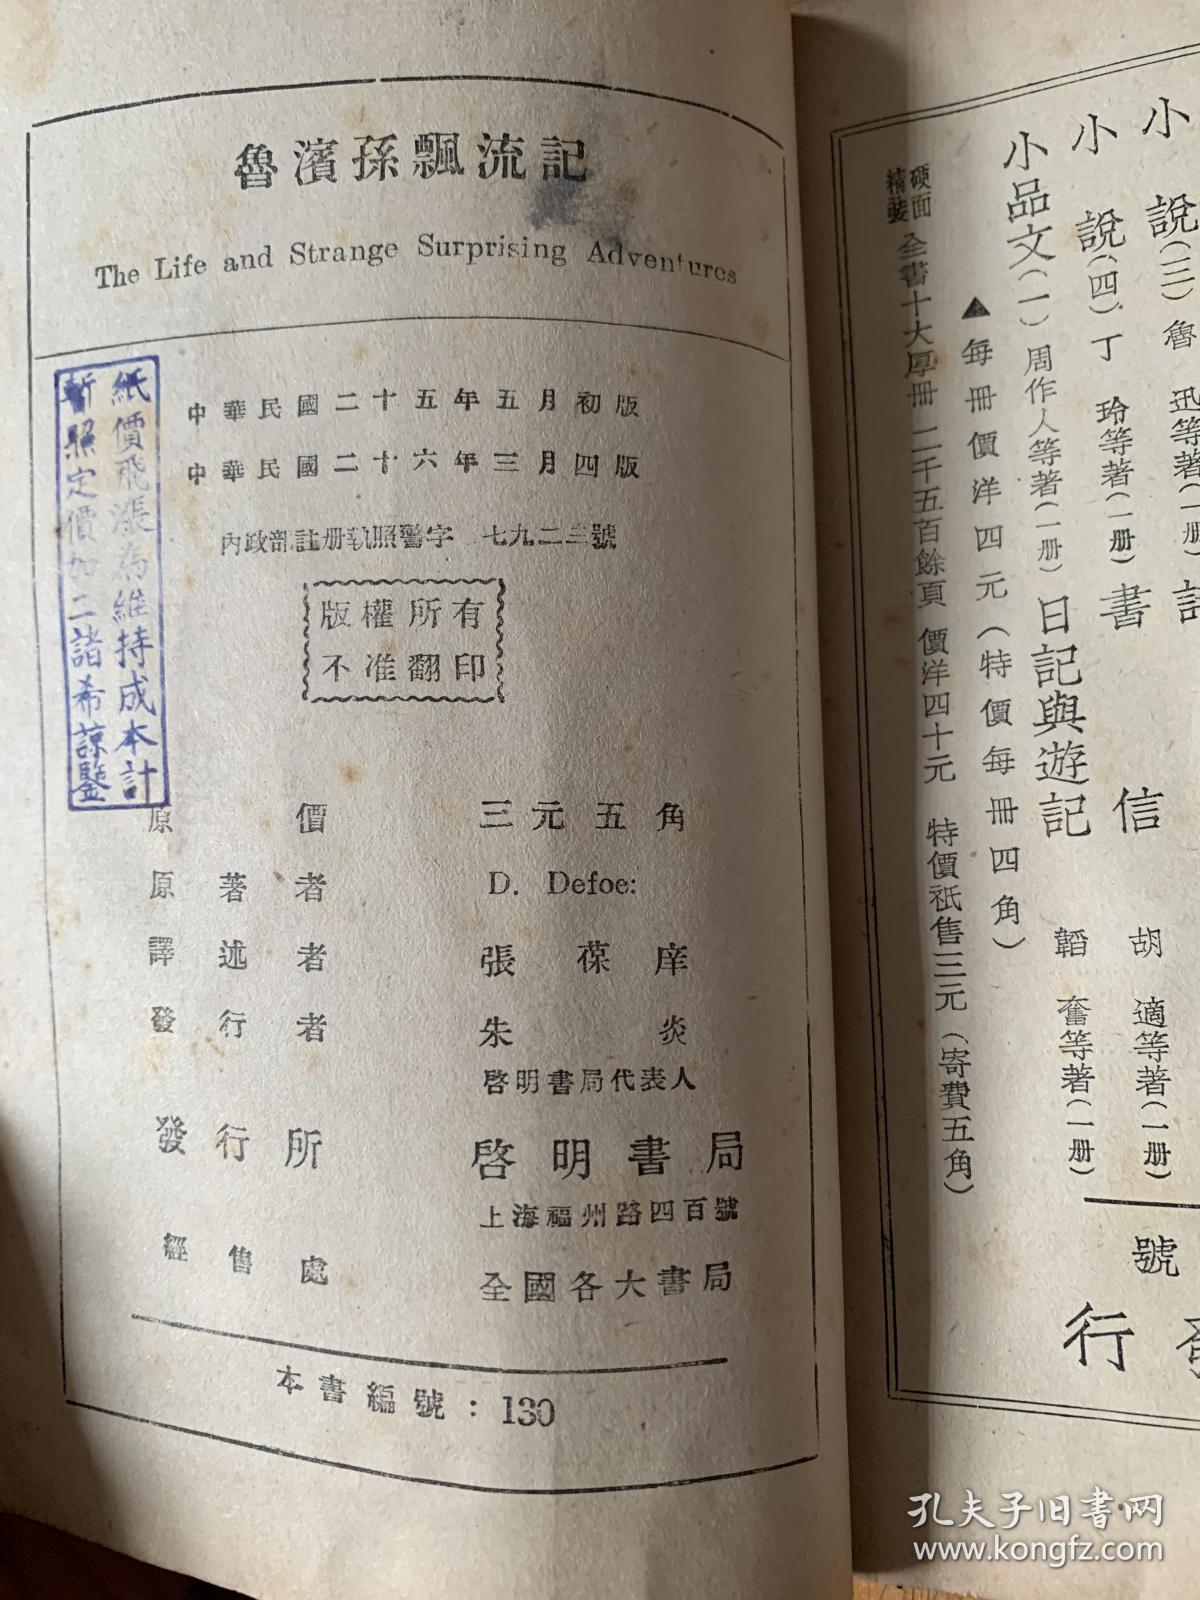 魯濱孫飄流記
The Life and Strange Surprising Adventures
中華民國二十五年五月初版
中華民國二十六年三月四版
內政部註册執照警字 七九二三號
版權所有
不准翻印
紙價飛漲為維持成本計
暫照定價加二諸希諒鑒
原價 三元五角
原著者 D. Defoe:
譯述者 張葆庠
發行者 朱炎
啓明書局代表人
發行所 啓明書局
上海福州路四百號
經售處 全國各大書局
本書編號：130
小說(三)魯迅等著(一册)
小說(四)丁玲等著(一册)書信 胡適等著(一册)
小品文(一)周作人等著(一册)日記與遊記 韜奮等著(一册)
▲每冊價洋四元(特價每冊四角)
硬面
精裝
全書十大厚冊 二千五百餘頁 價洋四十元 特價祇售三元(寄費五角)
號
行
孔夫子旧书网
www.kongfz.com